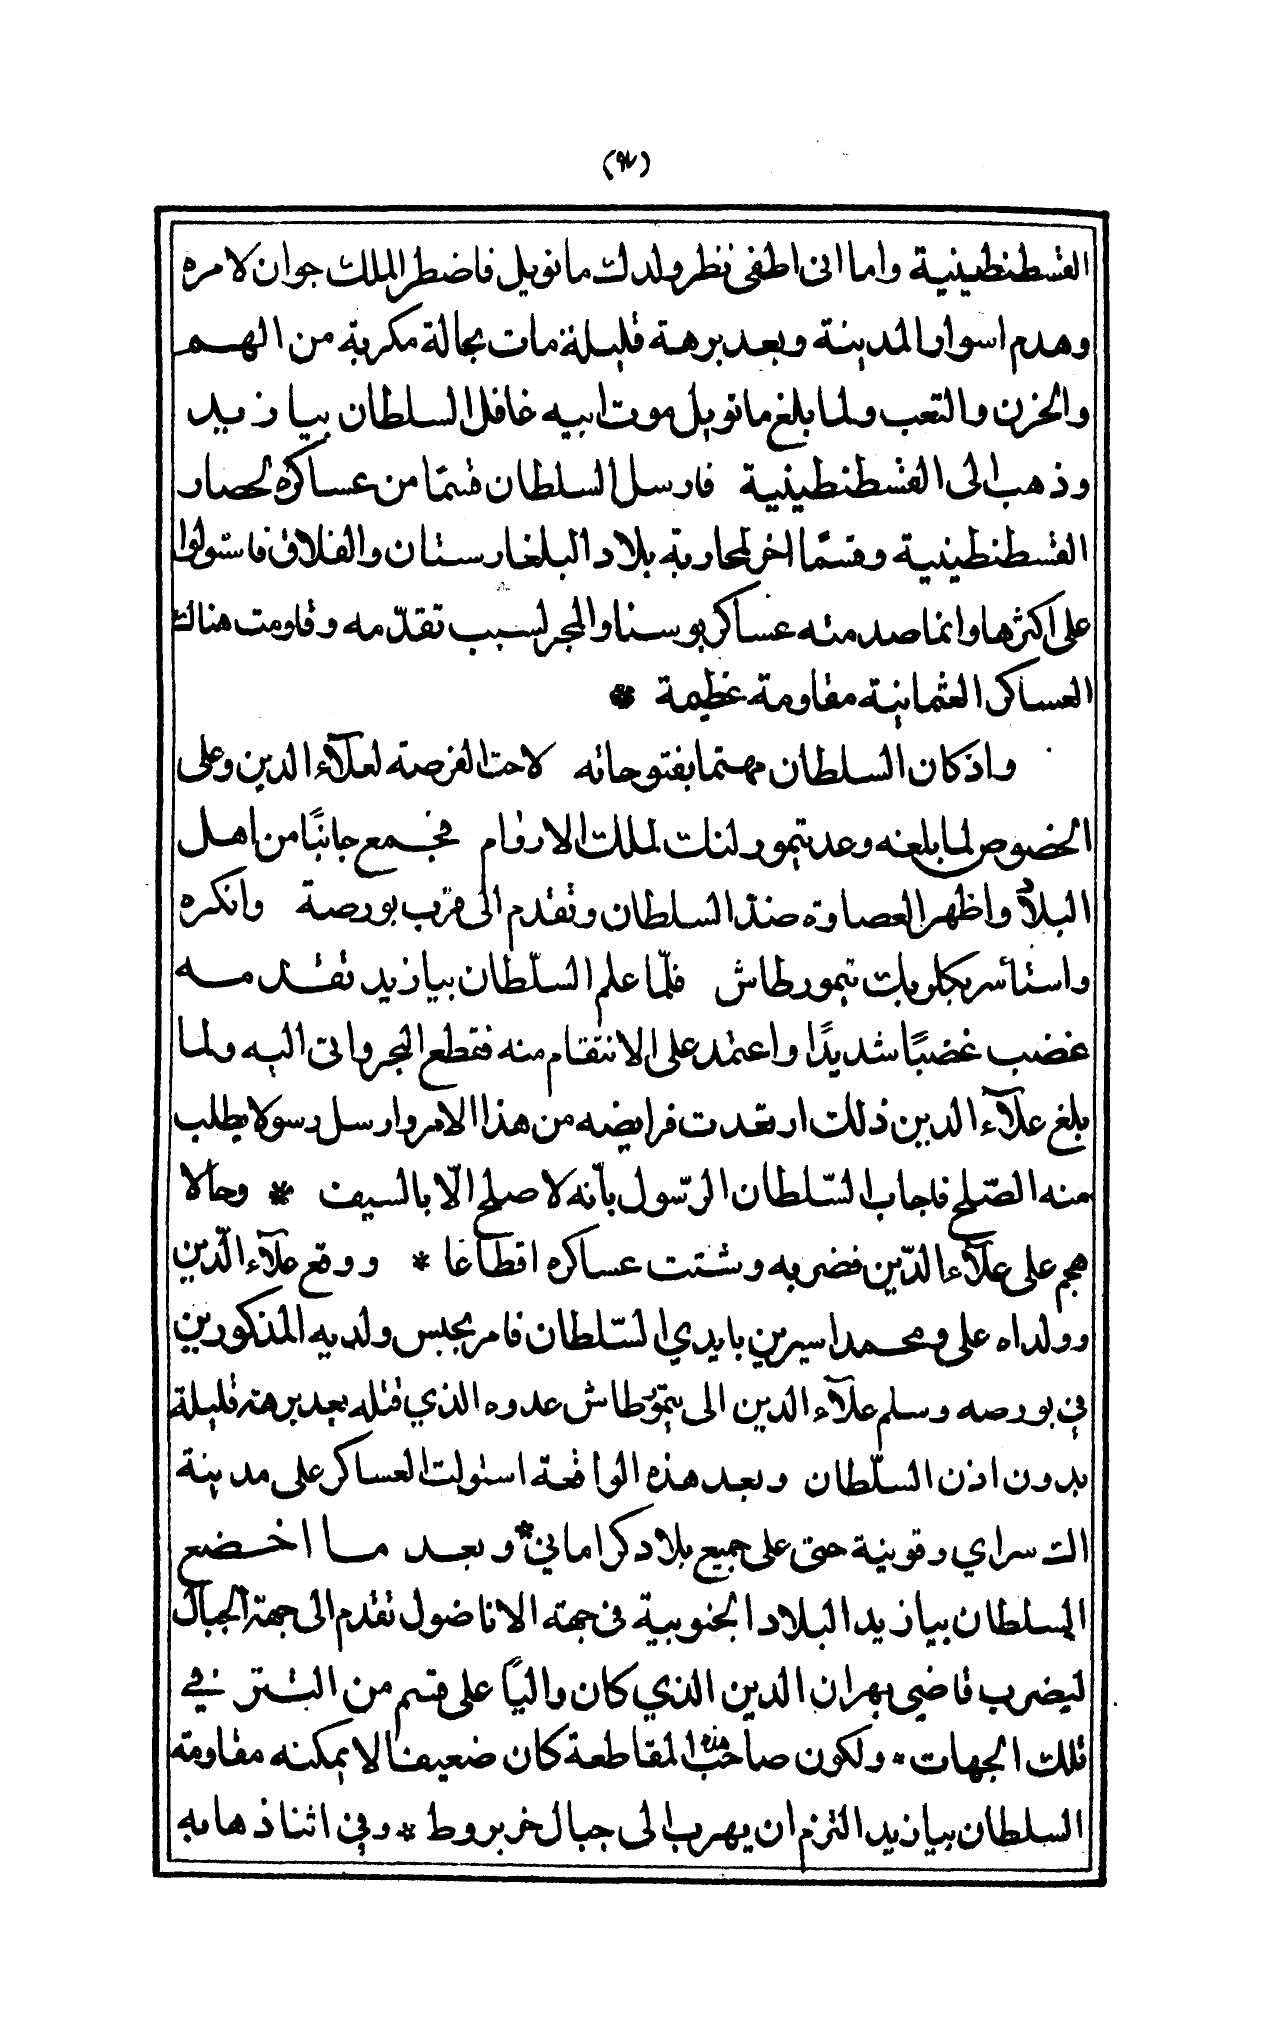 (٩٧)
القسطنطينية واما انى اطفى نظر ولدك مانويل فاضطر الملك جوان لامره
وهدم اسوار المدينة وبعد برهة قليلة مات بحالة مكربة من الهم
والحزن والتعب ولما بلغ مانويل موت ابيه غافل السلطان بيازيد
وذهب الى القسطنطينية فارسل السلطان قسمًا من عساكره لحصار
القسطنطينية وقسمًا اخر لمحاربة بلاد البلغارستان والفلاق فاستولوا
على اكثرها وانما صد منه عساكر بوسنا والمجر لسبب تقدّمه وقاومت هنالك
العساكر العثمانية مقاومة عظيمة *
واذ كان السلطان مهتما بفتوحاته لاحت الفرصة لعلآء الدين وعلى
الخصوص لما بلغه وعد تيمورلنك لملك الاروام فجمع جانبًا من اهل
البلاد واظهر العصاوة ضدّ السلطان وتقدم الى قرب بورصة وانكره
واستأسر بكلربك تيمورطاش فلمّا علم السلّطان بيازيد تقدمه
غضب غضبًا شديدًا واعتمد على الانتقام منه فقطع البحر واتى اليه ولما
بلغ علآء الدين ذلك ارتعدت فرايضه من هذا الامر وارسل رسولا يطلب
منه الصّلح فاجاب السّلطان الرّسول بأنه لا صلح الّا بالسيف * وحالا
هجم على علآء الدّين فضربه وشتت عساكره اقطاعا * ووقع علآء الدّين
وولداه على ومحمد اسيرين بايدي السّلطان فامر بحبس ولديه المذكورين
في بورصه وسلم علآء الدين الى تيمورطاش عدوه الذي قتله بعد برهة قليلة
بدون اذن السلّطان وبعد هذه الواقعة استولت العساكر على مدينة
اق سراي وقونية حتى على جميع بلاد كراماني * وبعد ما اخضع
السلطان بيازيد البلاد الجنوبية في جهة الاناضول تقدم الى جهة الجبال
ليضرب قاضي بهران الدين الذي كان واليًا على قسم من التتر في
تلك الجهات * ولكون صاحب هذه المقاطعة كان ضعيفا لا يمكنه مقاومة
السلطان بيازيد التزم ان يهرب الى جبال خربروط * وفي اثنا ذهابه